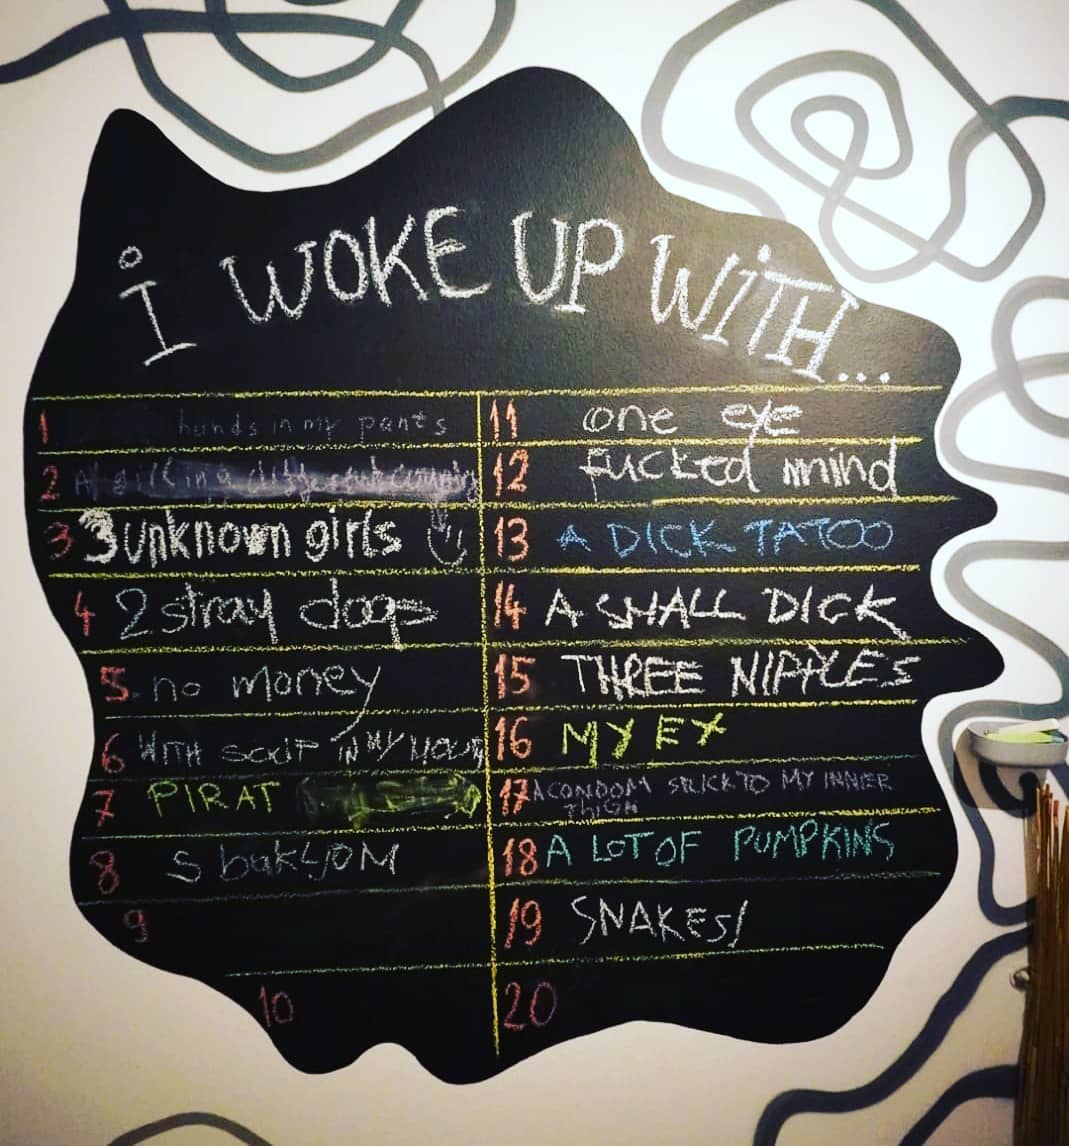 I WOKE UP WITH...
1 hands in my pants
2 A girl in a
3 3 unknown girls
4 2 stray dogs
5. no money
6 WITH SOUP IN MY MOUTH
7 PIRAT
8 S bakljOM
9
10
11 one eye
12 fucked mind
13 A DICK TATOO
14 A SMALL DICK
15 THREE NIPPLES
16 MY EX
17 A CONDOM STUCK TO MY INNER
THIGH
18 A LOT OF PUMPKINS
19 SNAKES!
20